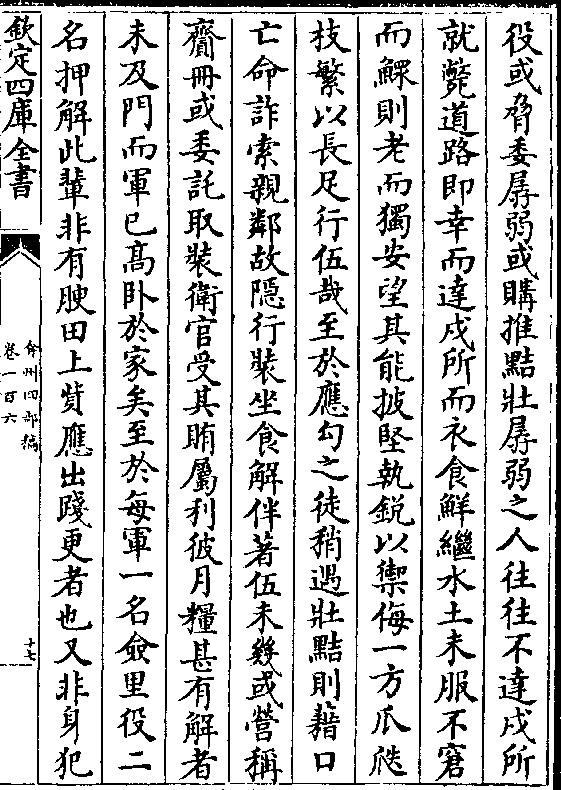 役或脅委孱弱或購推黠壯孱弱之人往往不達戍所
就斃道路即幸而達戍所而衣食鮮繼水土未服不窘
而鰥則老而獨安望其能披堅執銳以禦侮一方瓜瓞
技繁以長足行伍哉至於應勾之徒稍遇壯黠則藉口
亡命詐索親鄰故隐行裝坐食解伴著伍未幾或營稱
齎冊或委託取裝衛官受其賄屬利彼月糧甚有解者
未及門而軍已髙卧於家矣至於每軍一名僉里役二
名押解此軰非有腴田上貲應出踐更者也又非身犯
欽定四庫全書
弇州四部稿
卷一百六
十七